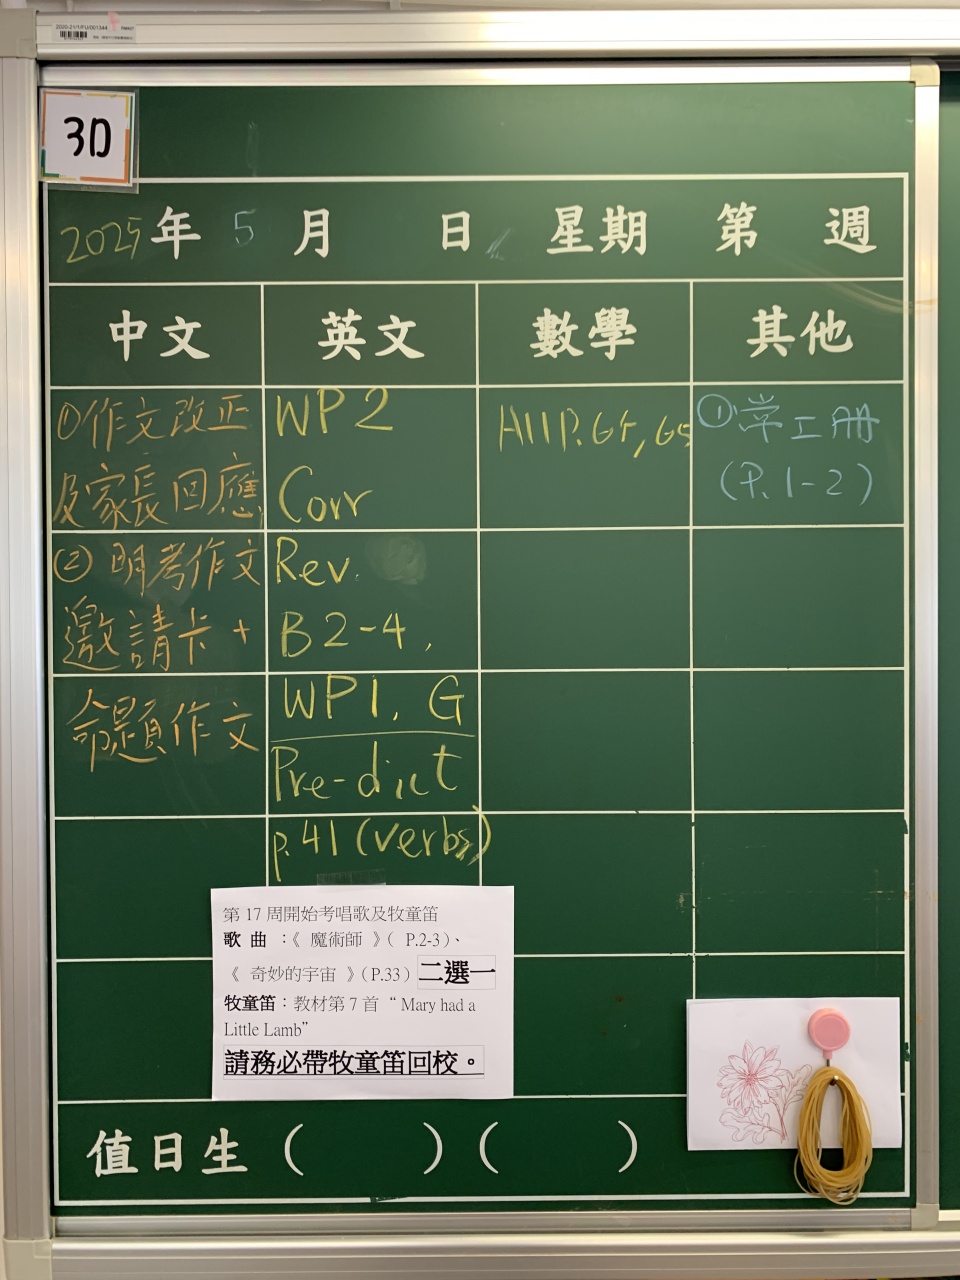 2020-21/1FU/001344
3D
2025年 5 月 日 星期 第 週
中文 英文 數學 其他
①作文改正
及家長回應
②明考作文
邀請卡+
命題作文
WP2
Corr
Rev.
B2-4,
WP1, G
Pre-dict
p.41 (verbs)
A11 P.64, 65
①常工冊
(P.1-2)
第 17 周開始考唱歌及牧童笛
歌 曲 ：《 魔術師 》( P.2-3)、
《 奇妙的宇宙 》(P.33) 二選一
牧童笛：教材第 7 首 “ Mary had a
Little Lamb”
請務必帶牧童笛回校。
值日生 ( ) ( )